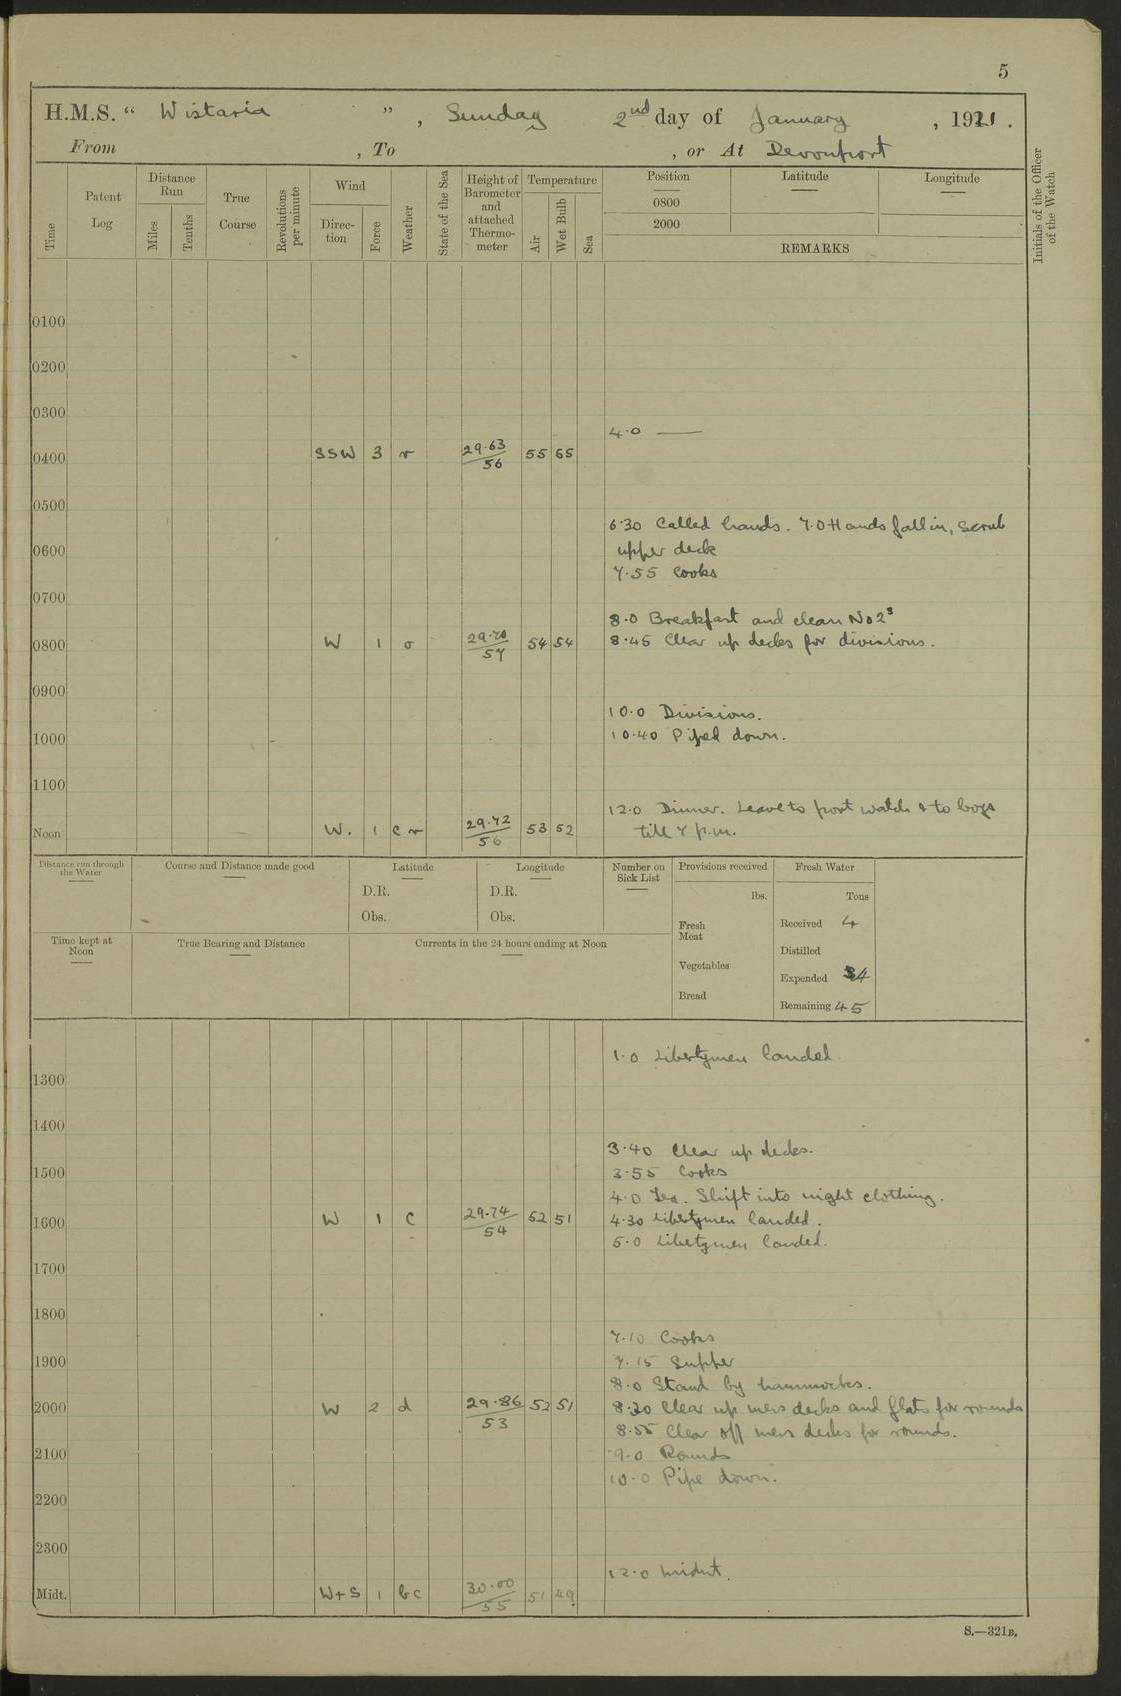 5
H.M.S. “ Wistaria ”, Sunday 2nd day of January, 1921.
From , To , or At Devonport
Time
Patent Log
Distance Run
Miles
Tenths
True Course
Revolutions per minute
Wind
Direction
Force
Weather
State of the Sea
Height of Barometer and attached Thermometer
Temperature
Air
Wet Bulb
Sea
Position
0800
2000
Latitude
Longitude
REMARKS
Initials of the Officer of the Watch
0100
0200
0300
4.0 —
0400 SSW 3 r 29.63/56 55 55
0500
6.30 Called hands. 7.0 Hands fall in, Scrub
0600 upper deck
7.55 Cooks
0700
8.0 Breakfast and clean No 2s
0800 W 1 o 29.70/57 54 54 8.45 Clear up decks for divisions.
0900
10.0 Divisions.
1000 10.40 Piped down.
1100
12.0 Dinner. Leave to port watch & to boys
Noon W. 1 c r 29.72/56 53 52 till 7 p.m.
Distance run through the Water
Course and Distance made good
Latitude
D.R.
Obs.
Longitude
D.R.
Obs.
Number on Sick List
Provisions received
lbs.
Fresh Meat
Vegetables
Bread
Fresh Water
Tons
Received 4
Distilled
Expended 4
Remaining 45
Time kept at Noon
True Bearing and Distance
Currents in the 24 hours ending at Noon
1.0 Libertymen landed
1300
1400
3.40 Clear up decks.
1500 3.55 Cooks
4.0 Tea. Shift into night clothing.
1600 W 1 C 29.74/54 52 51 4.30 Libertymen landed.
5.0 Libertymen landed.
1700
1800
7.10 Cooks
1900 7.15 Supper
8.0 Stand by hammocks.
2000 W 2 d 29.86/53 52 51 8.30 Clear up mess decks and flats for rounds
8.55 Clear off mess decks for rounds.
2100 9.0 Rounds
10.0 Pipe down.
2200
2300
12.0 Midnt.
Midt. W+S 1 bc 30.00/55 51 49
S.—321B.